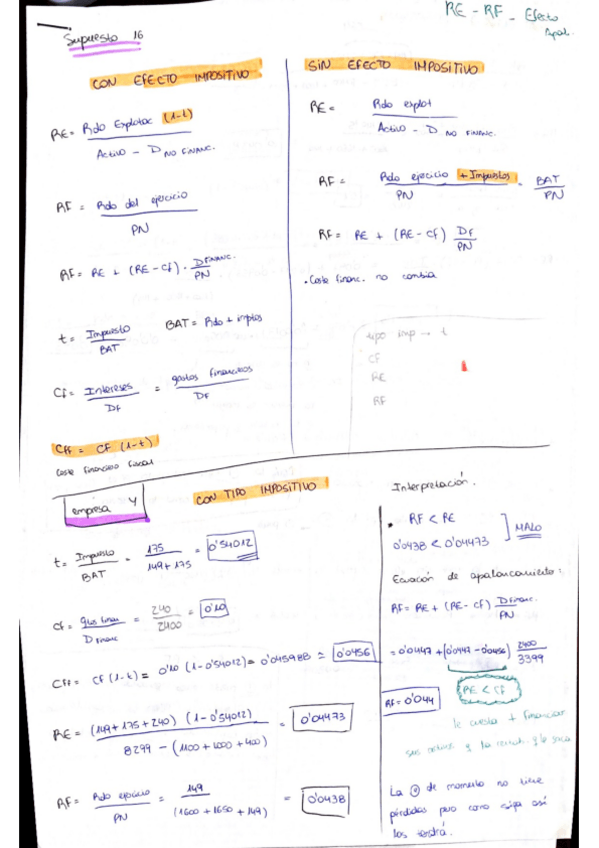 RE - RF - Efecto
Apal.
Supuesto 16
CON EFECTO IMPOSITIVO
RE = Rdo Explotac (1-t)
Activo - D NO FINANC.
RF = Rdo del ejercicio
PN
RF = RE + (RE - Cf) · D FINANC.
PN
t = Impuesto
BAT
BAT = Rdo + imptos
Cf = Intereses = gastos financieros
Df Df
Cff = CF (1-t)
Coste financiero fiscal
SIN EFECTO IMPOSITIVO
RE = Rdo explot
Activo - D NO FINANC.
RF = Rdo ejercicio + Impuestos = BAT
PN PN
RF = RE + (RE - Cf) Df
PN
· Coste financ. no cambia
tipo imp → t
CF
RE
RF
empresa Y
CON TIPO IMPOSITIVO
t = Impuesto = 175 = 0'54012
BAT 149 + 175
Cf = gtos finan = 240 = 0'10
D financ 2400
Cff = Cf (1-t) = 0'10 (1-0'54012) = 0'045988 = 0'0456
RE = (149 + 175 + 240) (1 - 0'54012) = 0'04473
8299 - (1100 + 1000 + 400)
RF = Rdo ejercicio = 149 = 0'0438
PN (1600 + 1650 + 149)
Interpretación.
· RF < RE
0'0438 < 0'04473
MALO
Ecuación de apalancamiento:
RF = RE + (RE - CF) D financ.
PN
= 0'0447 + (0'0447 - 0'0456) 2400
3399
RF = 0'044
RE < CF
le cuesta + financiar
sus activos y la rentab. q le saca
La de momento no tiene
pérdidas pero como siga así
los tendrá.